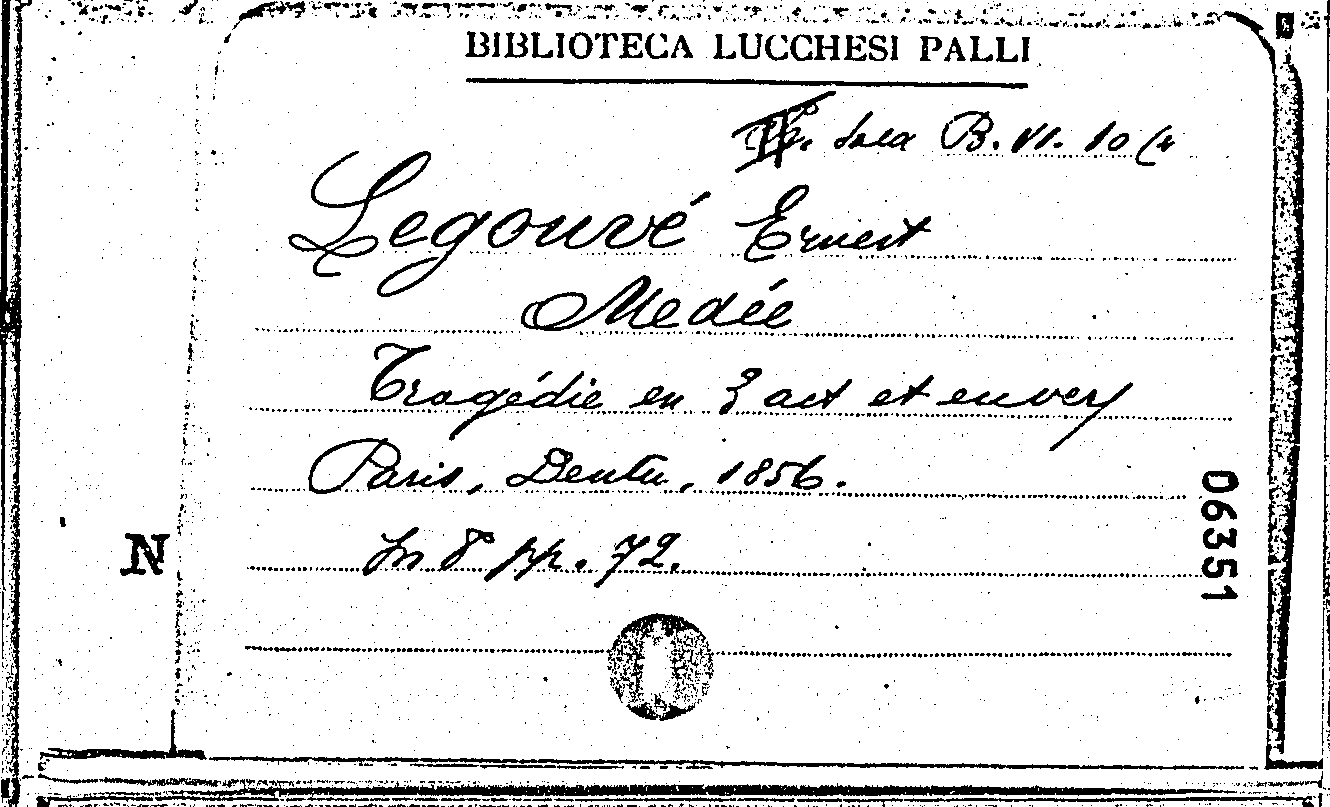 BIBLIOTECA LUCCHESI PALLI
Sala B. VI. 10 (4
Legouvé Ernest
Medée
Tragédie en 3 act et en vers
Paris, Dentu, 1856.
In 8° pp. 72.
N
06351